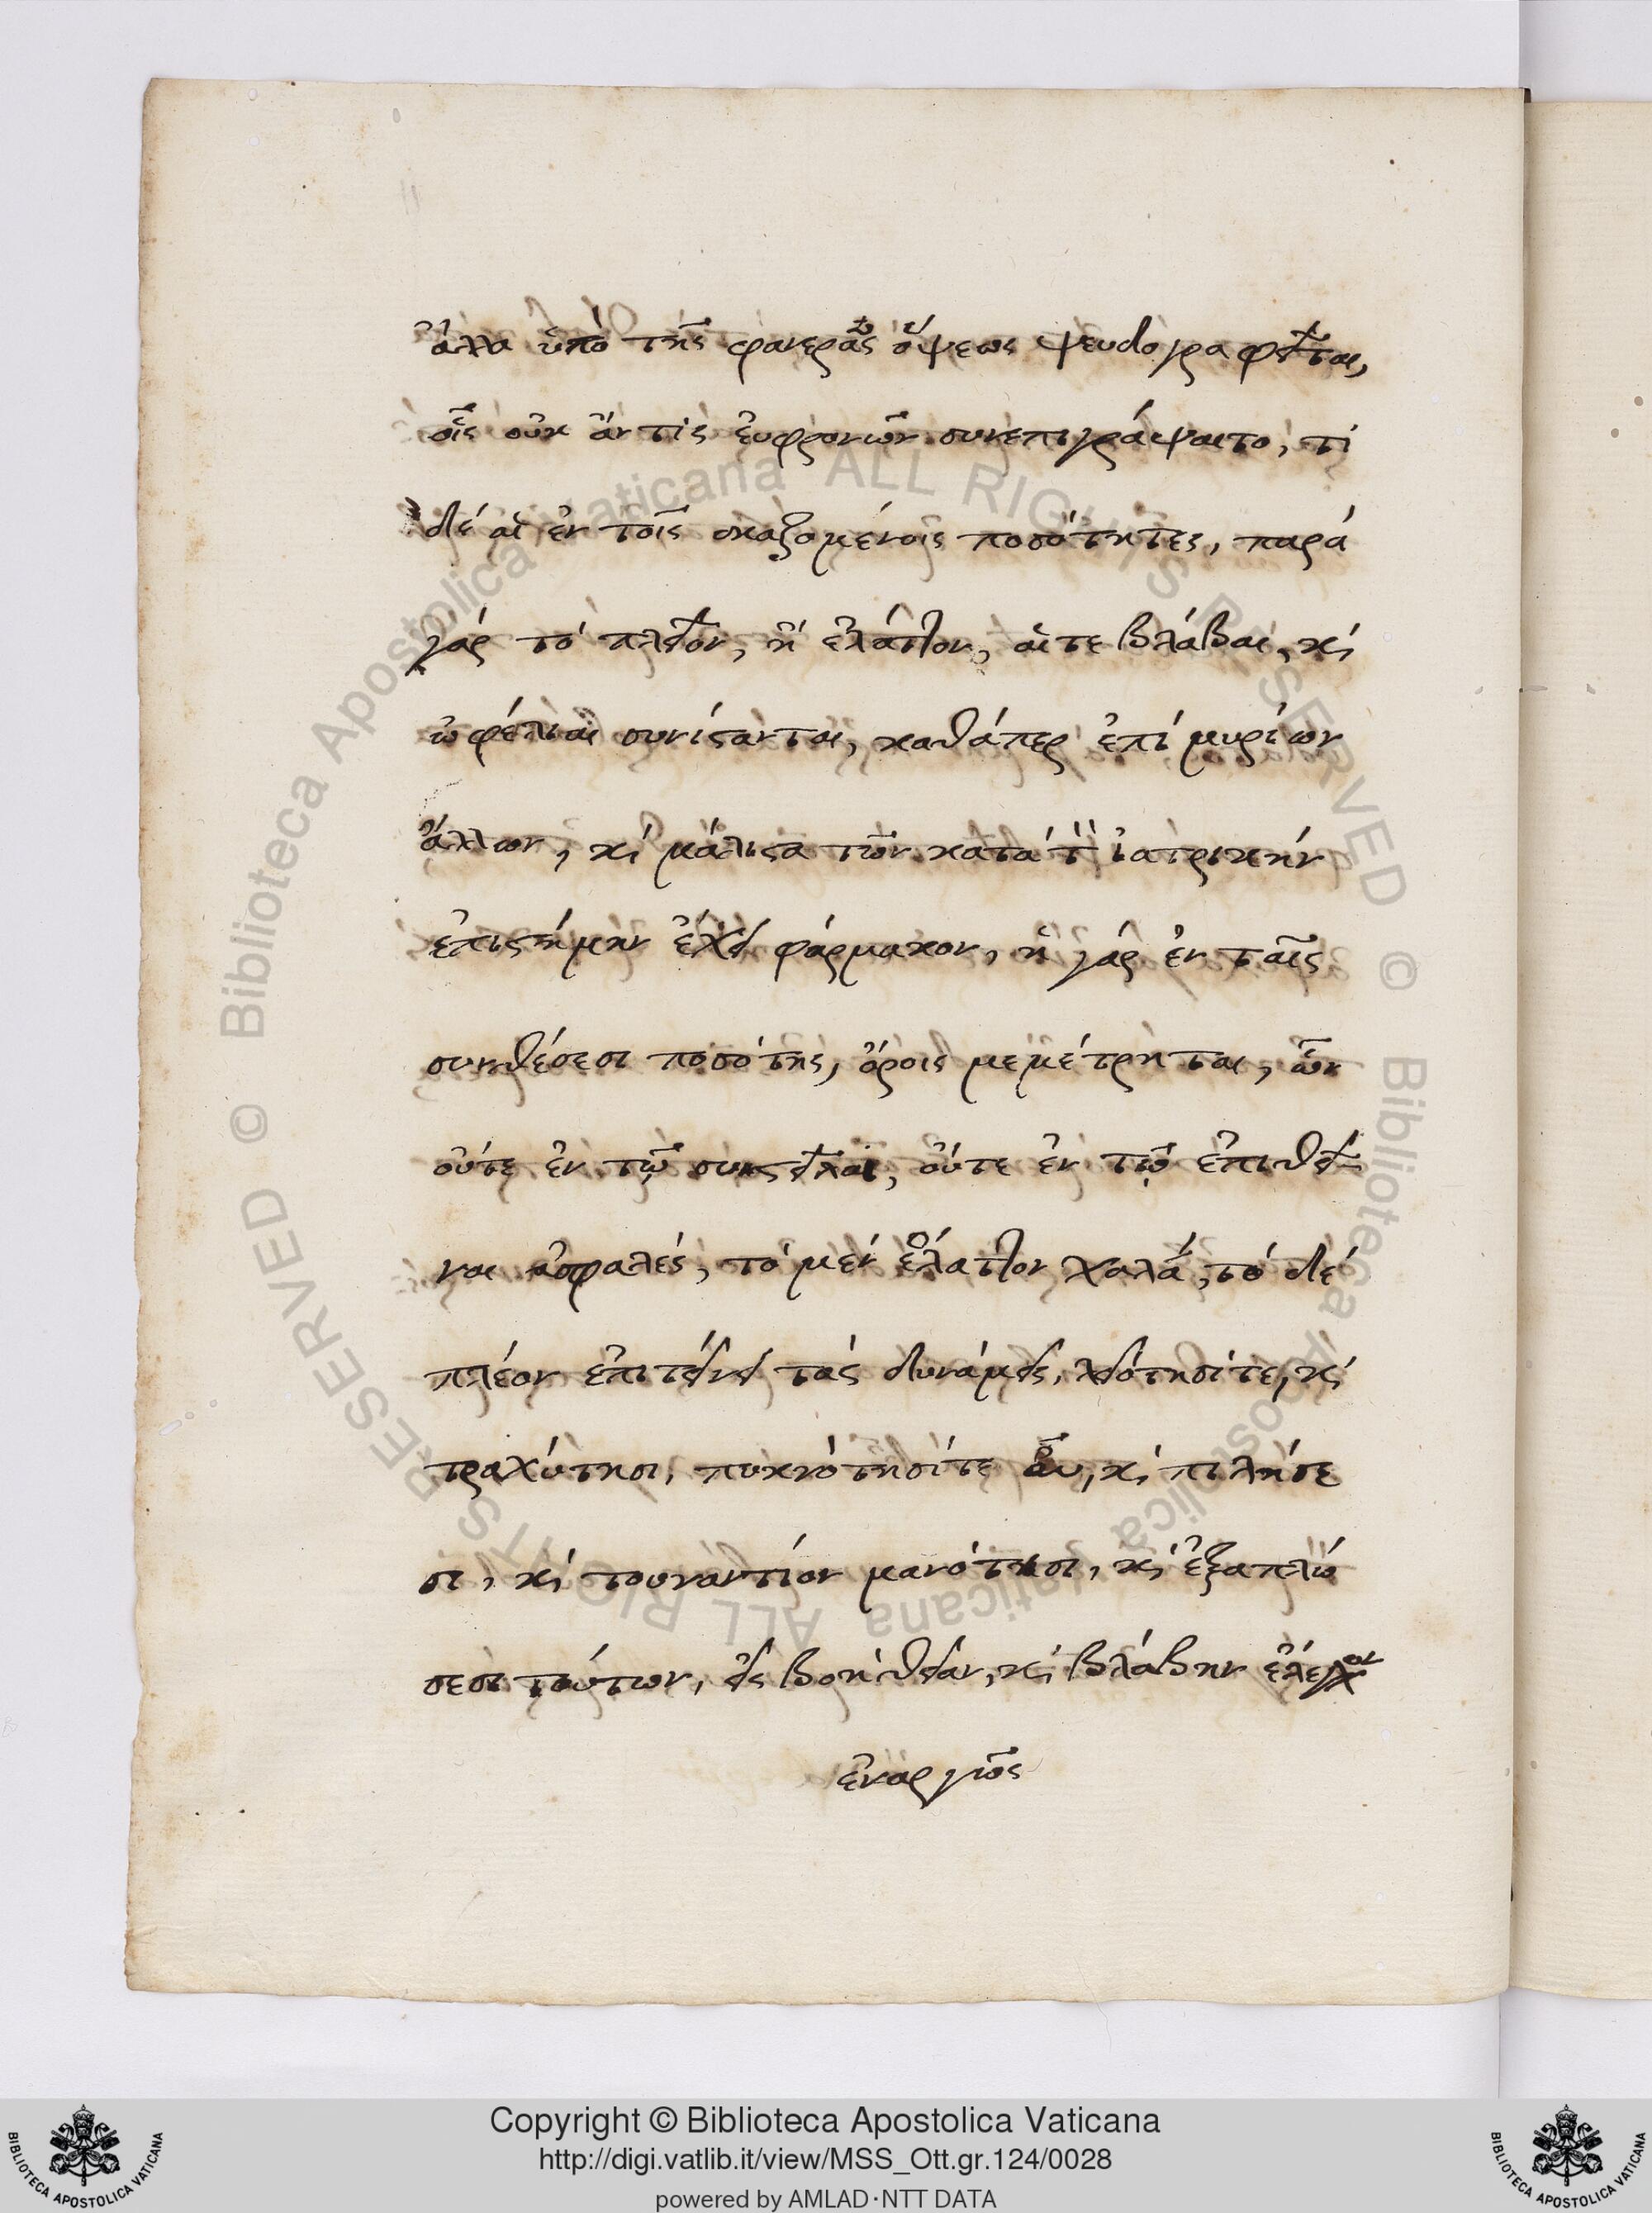 ἀλλα ὑπὸ τῆς φανερᾶς ὄψεως ψευδογραφεῖται,
οἷς οὐκ ἄν τίς εὐφρονῶν συνεπιγράψαιτο, τί
δέ αἱ ἐν τοῖς σκαζομένοις ποσότητες, παρά
γάρ τό πλεῖον, ἤ ἐλάττον, αἵτε βλάβαι, κ᾽
ὠφέλιαι συνίστανται, καθάπερ ἐπί μυρίων
ἄλλων, κ᾽ μάλιστα τῶν κατά τ̀ ἰατρικήν
ἐπιστήμην ἔχει φάρμακον, ἡ γάρ ἐν ταῖς
συνθέσεσι ποσότης, ὅροις μεμέτρηται, ὧν
οὔτε ἐν τῷ συστεῖλαι, οὔτε ἐν τῷ ἐπιθεῖ
ναι ἀσφαλές, τό μέν ἔλαττον χαλᾷ, τό δέ
πλέον ἐπιτείνει τάς δυνάμεις, λειότησίτε, κ᾽
τραχύτησι, πυκνότησίτε αὖ, κ᾽ πιλήσε
σι, κ᾽ τουναντίον μανότησι, κ᾽ ἐξαπλώ
σεσι τούτων, εἰς βοήθειαν, κ᾽ βλάβην ἔλεγχον
ἐναργῶς
Copyright © Biblioteca Apostolica Vaticana
http://digi.vatlib.it/view/MSS_Ott.gr.124/0028
powered by AMLAD·NTT DATA